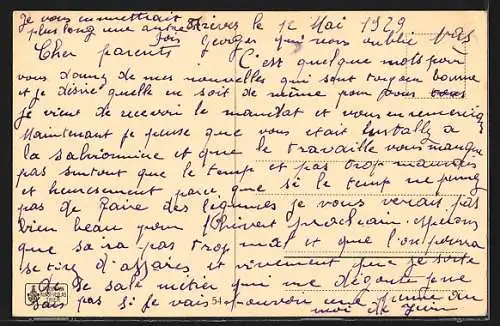 Je vous en mettrait
plus long une autre fois
Trèves le 1e Mai 1929
Georges qui vous oublie pas
Cher parents
C'est quelque mots pour
vous donné de mes nouvelles qui sont toujour bonne
et je désire quelle en soit de même pour vous
je vient de recevoir le mandat et vous en remercie
Maintenant je pense que vous était Instally a
la salvionnine et que le travaille vous manque
pas surtout que le temp et pas trop mauvais
et heureusement parce que si le temp ne
pas de faire des légumes je vous verait pas
bien beau pour l'hivert prochain. espérons
que sa ira pas trop mal et que l'on pourra
se tiré d'affaires, et vivement que je sorte
de se sale metier qui me dégoute je
sait pas si je vais pouvoir une
moi de Juin
54